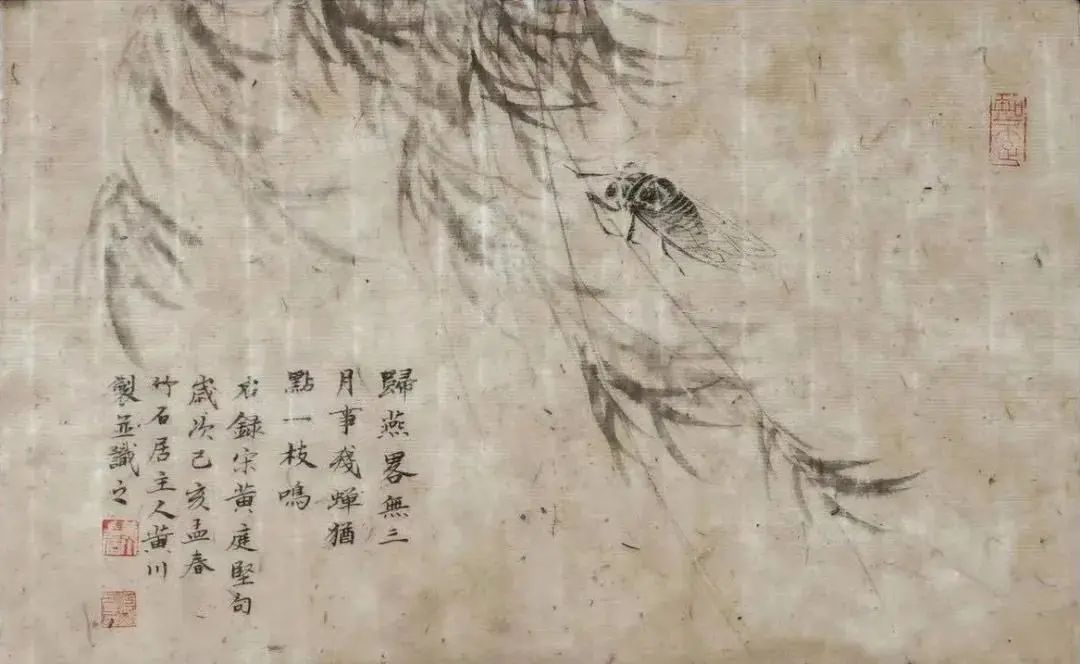 知不足
歸燕畧無三
月事殘蟬猶
點一枝鳴
右録宋黃庭堅句
歲次己亥孟春
竹石居主人黃川
製並識之